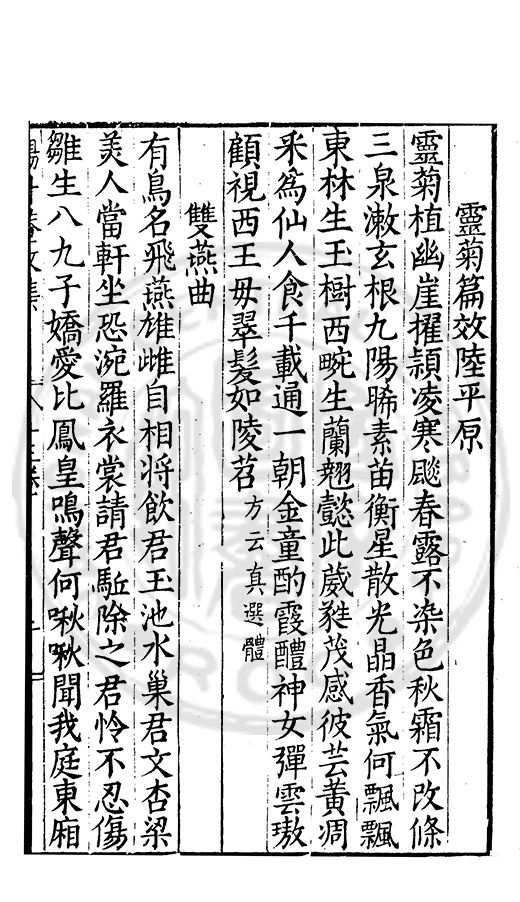 靈菊篇效陸平原
靈菊植幽崖擢頴凌寒飈春露不染色秋霜不改條
三泉漱玄根九陽晞素苗衡星散光晶香氣何飄飄
東林生玉樹西畹生蘭翹懿此葳蕤茂感彼芸黃凋
釆爲仙人食千載通一朝金童酌霞醴神女彈雲璈
顧視西王毋翠髮如陵苕方云真選體
雙燕曲
有鳥名飛燕雄雌自相將飲君玉池水巢君文杏梁
羙人當軒坐恐涴羅衣裳請君駈除之君怜不忍傷
雛生八九子嬌愛比鳳皇鳴聲何啾啾聞我庭東廂